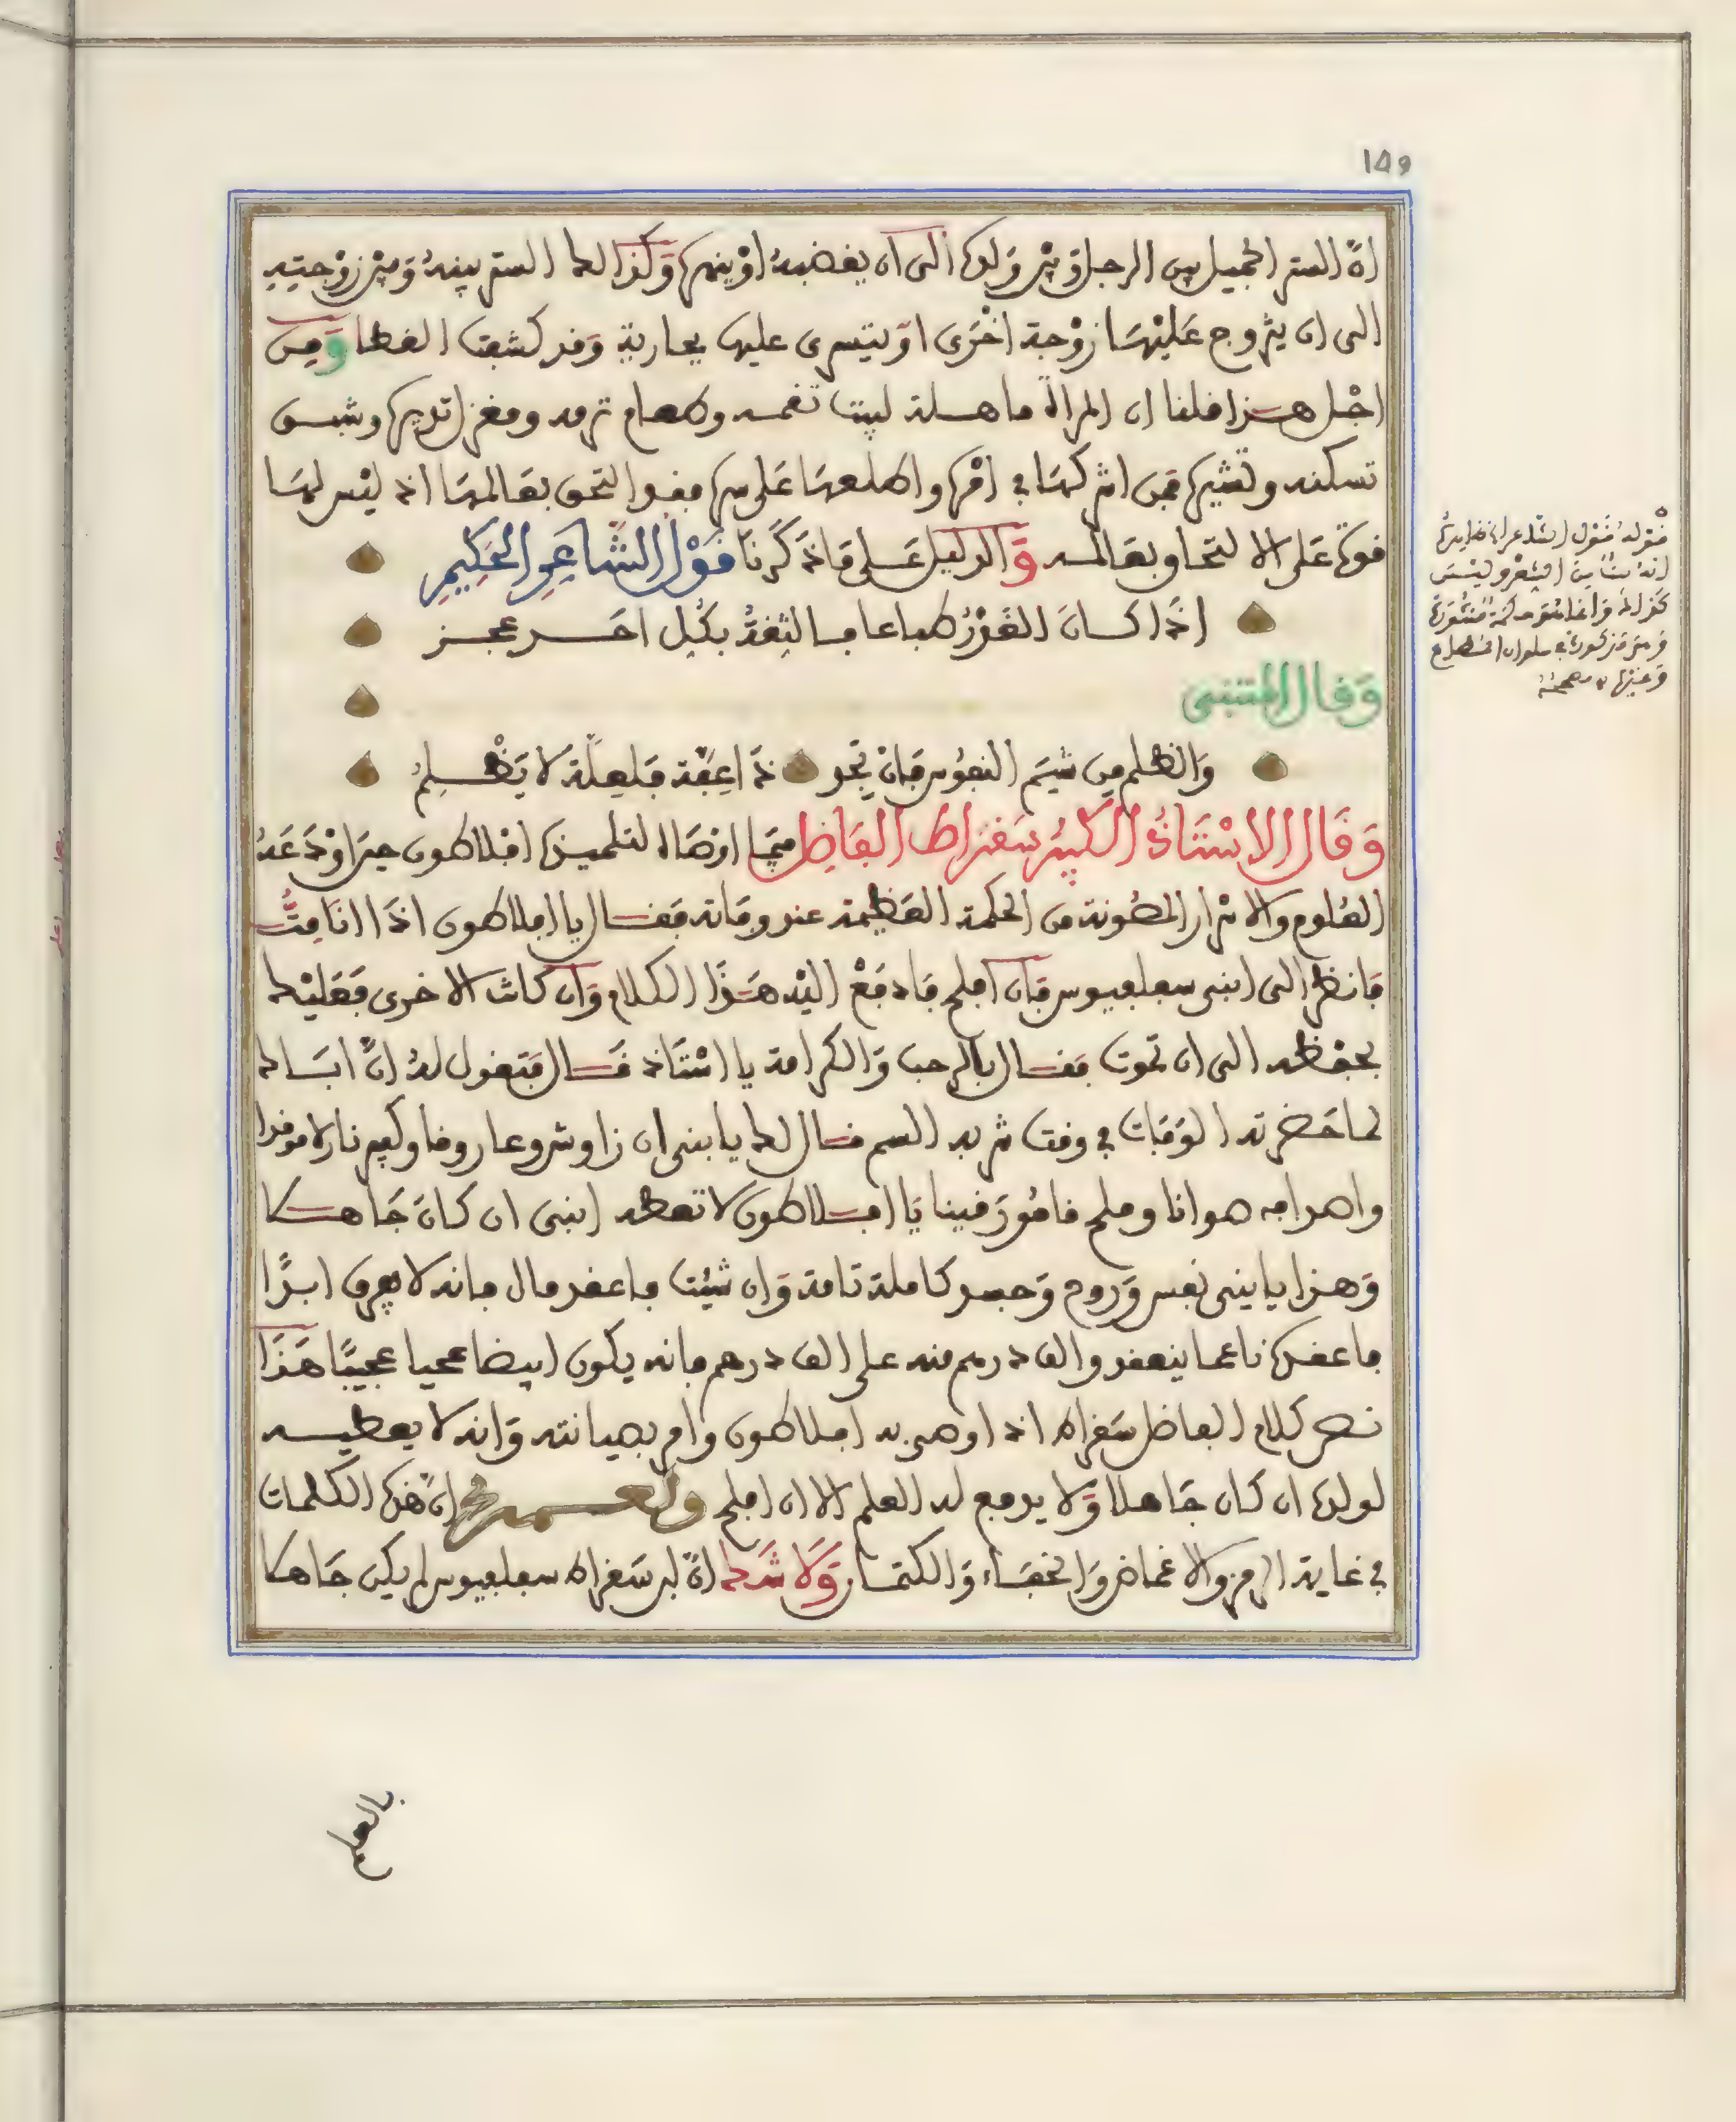 ١٥٩
ان الستر الجميل بين الرجل وبين ولده الى ان يغضبه او ينهره وكذالك الستر بينه وبين زوجته
الى ان يتزوج عليها زوجة اخرى او يتسرى عليها بجارية وقد كشفت الغطا ومن
اجل هذا قلنا ان المراة ما هملة لبيت تغمه وطعام ترمه ومغزل تديره وشبق
تسكنه وتثيره فمن اشركها في امره واطلعها على سره فقد التحق بعالمها اذ ليس لها
قوة على الا لتحاق بعالمه والدليل على ما ذكرنا قول الشاعر الحكيم
اذا كان الغدر طباعا فالثقة بكل احد عجز
وقال المتنبي
والظلم من شيم النفوس فان تجد ذا عفة فلعلة لا يظلم
وقال الاستاذ الكبير سقراط الفاضل مما اوصاه لتلميذه افلاطون حين اودعه
العلوم والاسرار المصونة من الحكمة العظيمة عند وفاته فقال يا افلاطون اذا انا مت
فانظر الى ابني سعلعيوس فان افلح فادفع اليه هذا الكلام وان كانت الاخرى فعليك
بحفظه الى ان تموت فقال بالرحب والكرامة يا استاذ قال فتقول له ان اباك
لما حضرته الوفات في وقت شربه السم قال لك يا بني ان زاوش وعاروفا وكيم نار لا موقدا
واهدامه هوانا وملح فامورفينا يا افلاطون لا تعطه ابني ان كان جاهلا
وهذا يا بني نفس وروح وجسد كاملة تامة وان شئت فاعقد مال فانه لا يعرق ابدا
فاعقده ناعما ينعقد والق درهم منه على الف درهم فانه يكون ابيضا محيا عجيبا هذا
نص كلام الفاضل سقراط اذ اوصى به افلاطون وامر بصيانته وانه لا يعطيه
لولده ان كان جاهلا ولا يدفع له العلم الا ان افلح ولعمري ان هذه الكلمات
في غاية الرمز والاغماض والخفاء والكتمان ولا شك ان ابن سقراط سعلعيوس لم يكن جاهلا
قوله قول الشاعر
انه بيتا من الشعر وليس
كذالك وانما هو حكمة منثورة
وهي مذكورة في سلوان المطاع
وغيرها مصححه
بالعلم